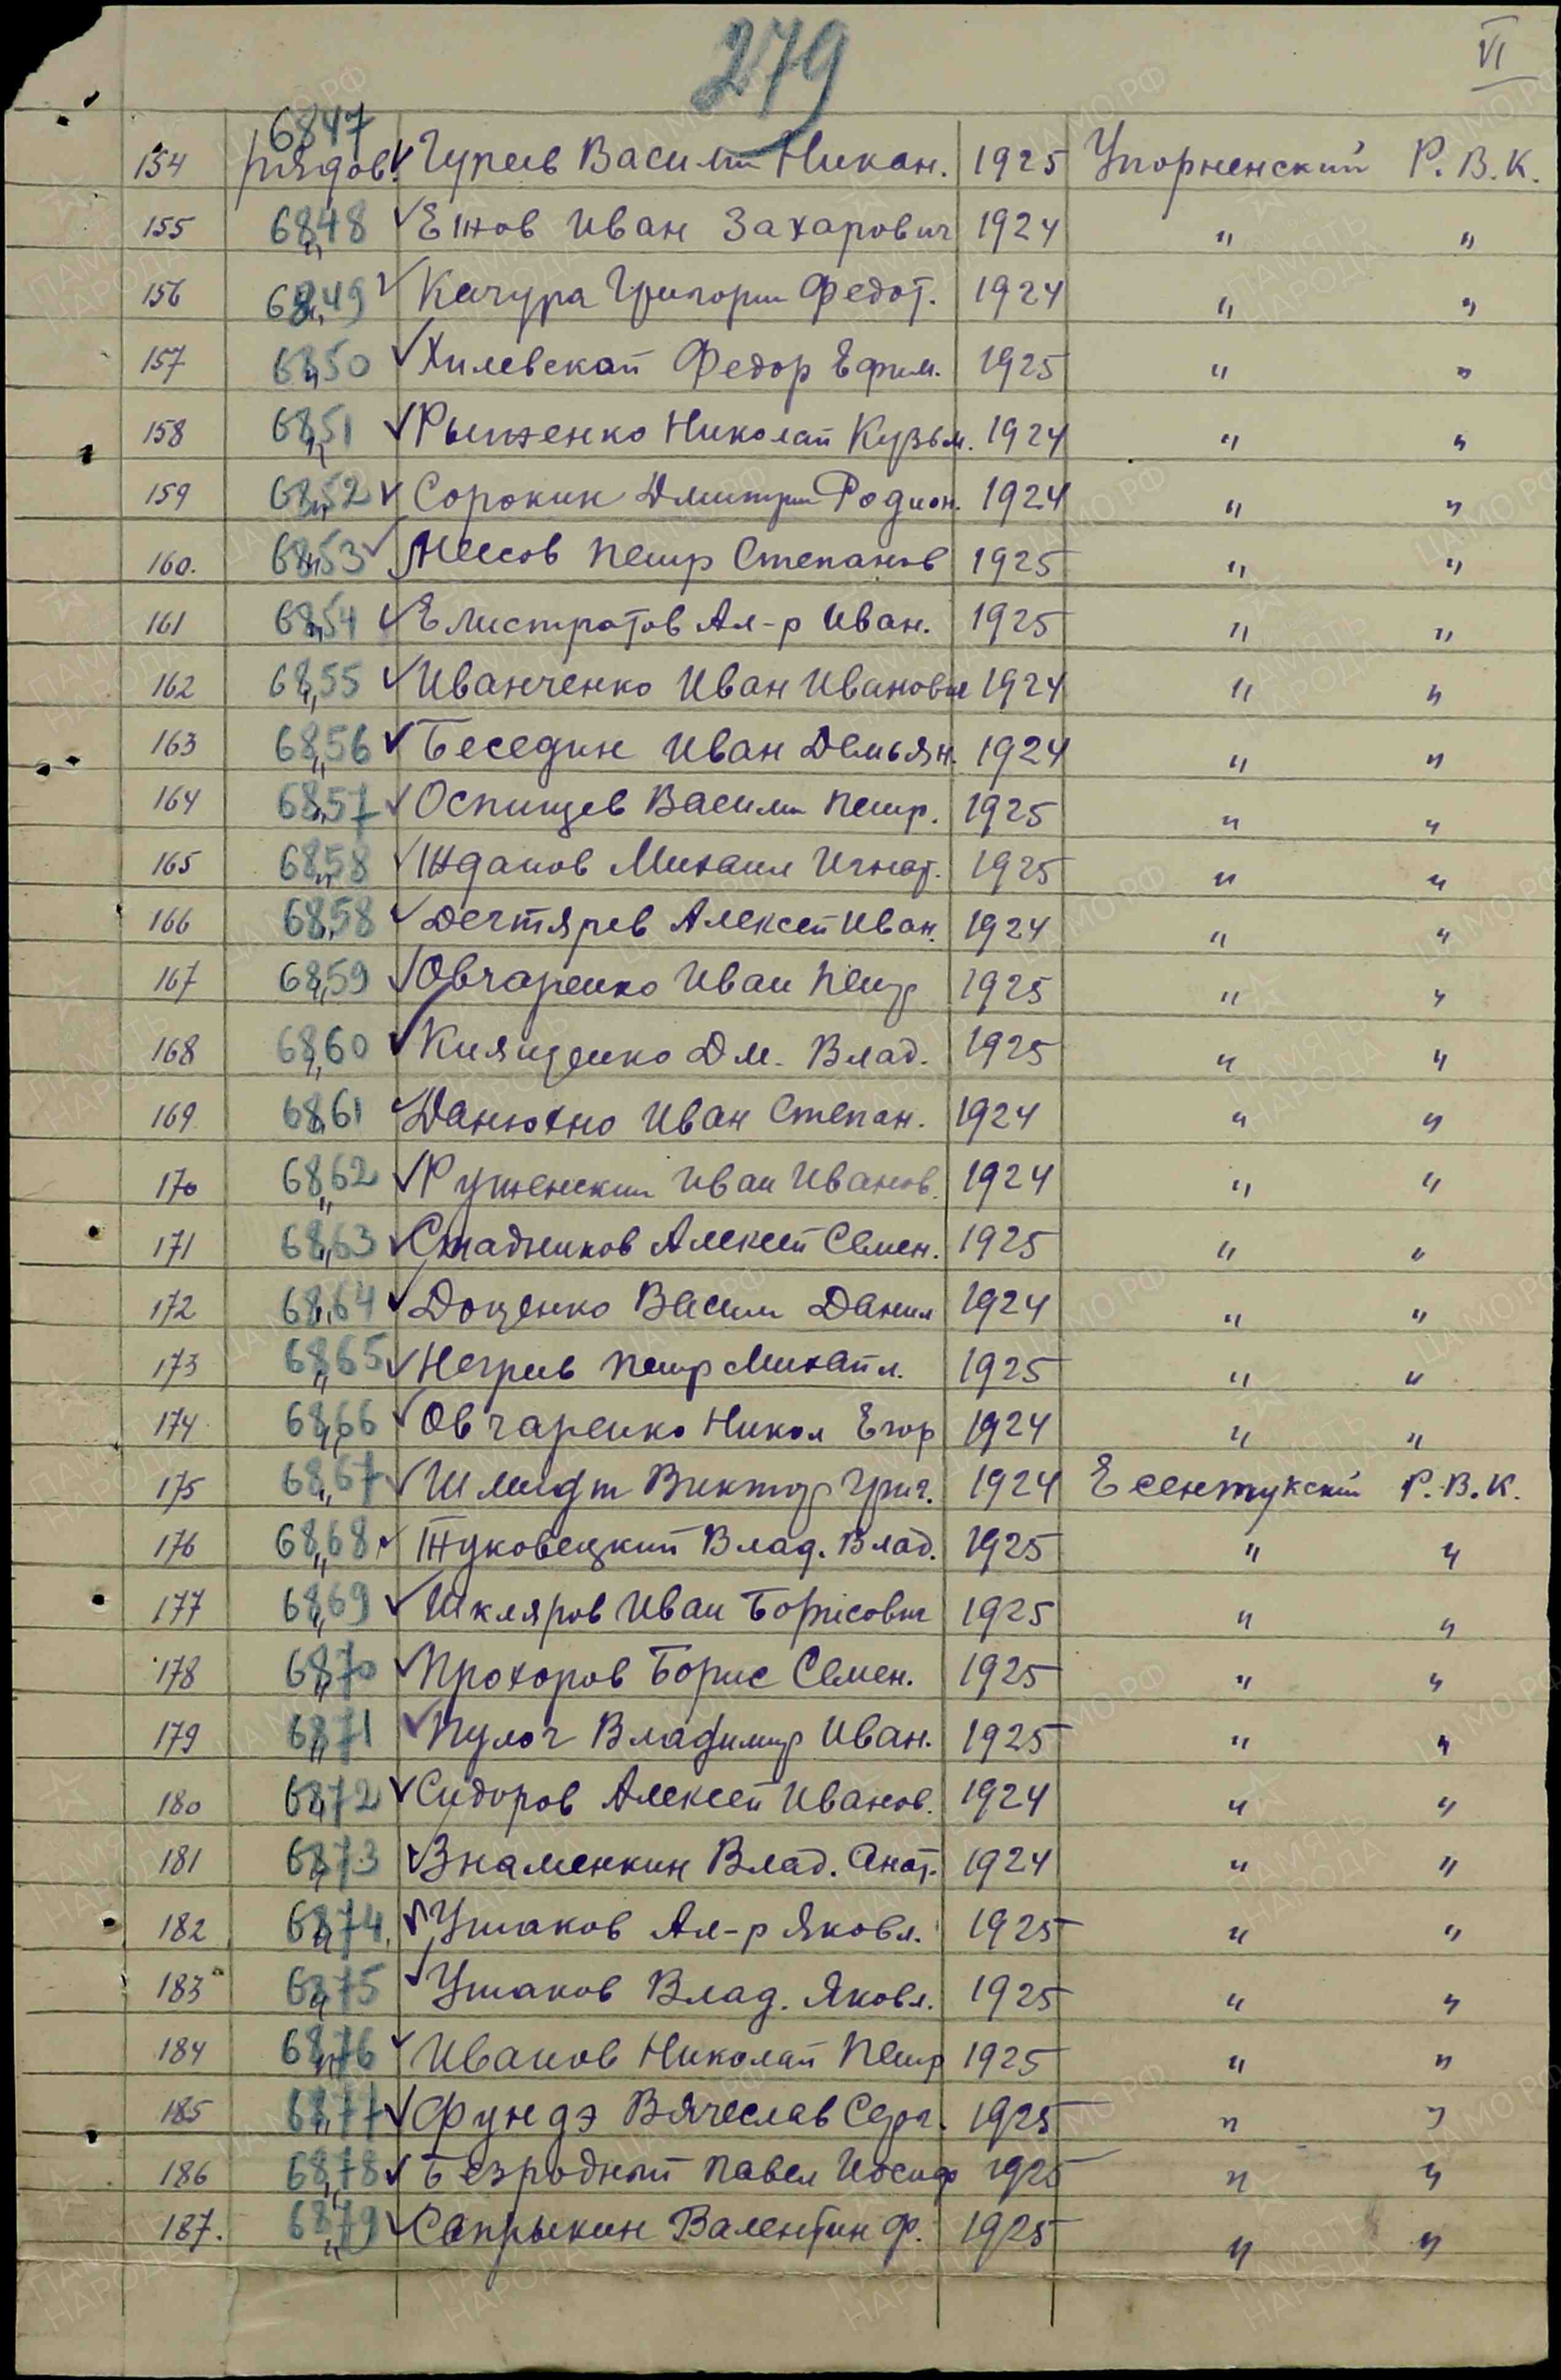 279
VI
6847
154 рядов. Гуреев Василий Никан. 1925 Упорненский Р.В.К.
155 6848 " Ежов Иван Захарович 1924 " "
156 6849 " Качура Григории Федот. 1924 " "
157 6850 " Хилевской Федор Ефим. 1925 " "
158 6851 " Рыженко Николай Кузьм. 1924 " "
159 6852 " Сорокин Дмитрии Родион. 1924 " "
160. 6853 " Петр Степанов 1925 " "
161 6854 " Елистратов Ал-р Иван. 1925 " "
162 6855 " Иванченко Иван Иванович 1924 " "
163 6856 " Беседин Иван Демьян. 1924 " "
164 6857 " Оспищев Василии Петр. 1925 " "
165 6858 " Жданов Михаил Игнат. 1925 " "
166 6858 " Дегтярев Алексей Иван. 1924 " "
167 6859 " Овчаренко Иван Петр 1925 " "
168 6860 " Киященко Дм. Влад. 1925 " "
169 6861 " Данюхно Иван Степан. 1924 " "
170 6862 " Руженский Иван Иванов. 1924 " "
171 6863 " Стадников Алексей Семен. 1925 " "
172 6864 " Доценко Василии Данил 1924 " "
173 6865 " Негреев Петр Михайл. 1925 " "
174 6866 " Овчаренко Никол Егор 1924 " "
175 6867 " Шмидт Виктор Григ. 1924 Есентукский Р.В.К.
176 6868 " Жуковецкий Влад. Влад. 1925 " "
177 6869 " Шкляров Иван Борисович 1925 " "
178 6870 " Прохоров Борис Семен. 1925 " "
179 6871 " Пулог Владимир Иван. 1925 " "
180 6872 " Сидоров Алексей Иванов. 1924 " "
181 6873 " Знаменкин Влад. Анат. 1924 " "
182 6874 " Ушаков Ал-р Яковл. 1925 " "
183 6875 " Ушаков Влад. Яковл. 1925 " "
184 6876 " Иванов Николай Петр 1925 " "
185 6877 " Фундэ Вячеслав Серг. 1925 " "
186 6878 " Безродный Павел Иосиф 1925 " "
187. 6879 " Сапрыкин Валентин Ф. 1925 " "